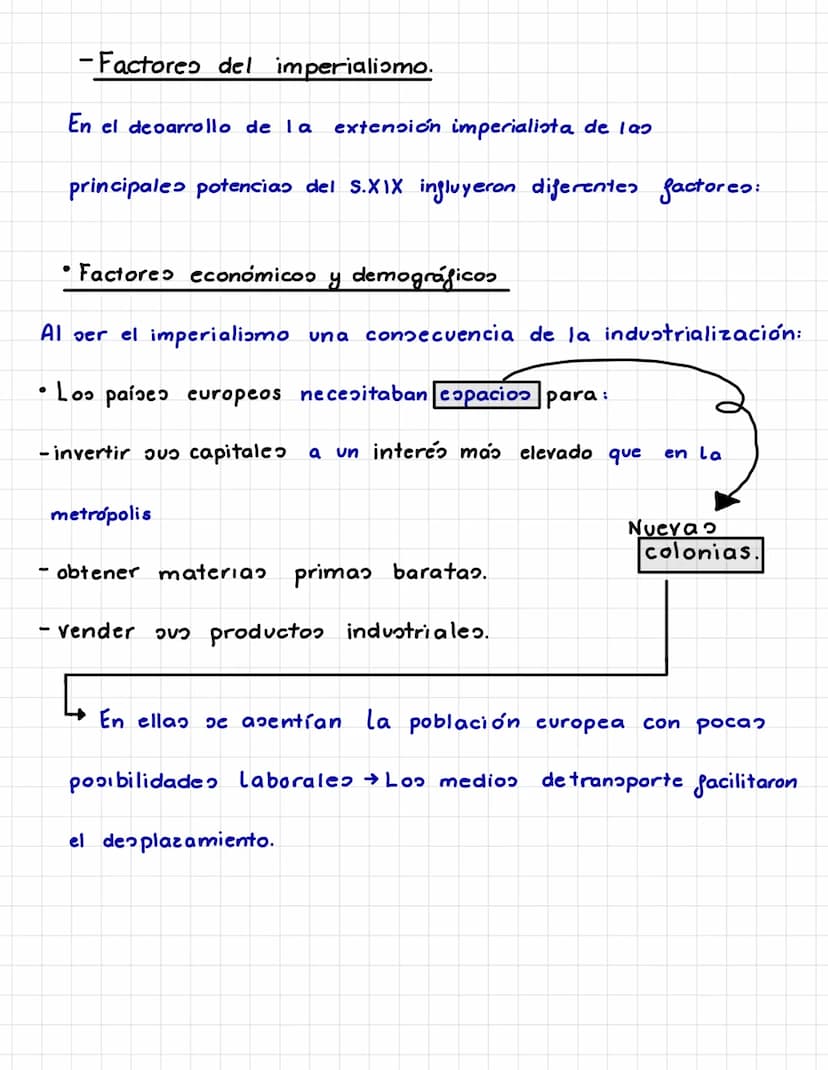 - Factores del imperialismo.
En el desarrollo de la extensión imperialista de las
principales potencias del S.XIX influyeron diferentes factores:
• Factores económicos y demográficos
Al ser el imperialismo una consecuencia de la industrialización:
• Los países europeos necesitaban espacios para:
- invertir sus capitales a un interés más elevado que en la
metrópolis
Nuevas
colonias.
- obtener materias primas baratas.
- vender sus productos industriales.
En ellas se asentían la población europea con pocas
posibilidades laborales → Los medios de transporte facilitaron
el desplazamiento.